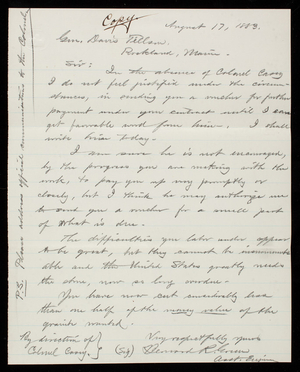 Copy
August 17, 1883.
Gen. Davis Tillson.
Rockland, Maine.
Sir:
In the absence of Colonel Casey
I do not feel justified under the circum-
stances, in sending you a voucher for further
payment under your contract until I can
get favorable word from him. I shall
write him to-day.
I am sure he is not encouraged,
by the progress you are making with the
work, to pay you up promptly or
closely, but I think he may authorize me
to send you a voucher for a small part
of what is due.
The difficulties you labor under appear
to be great, but they cannot be
able and the United States greatly needs
the stone, now so long overdue.
You have now cut considerably less
than one half of the money value of the
granite wanted.
By direction of
Colonel Casey.
Very respectfully yours
(Sgd) Bernard R. Green
Asst. Engineer
P.S. Please address official communications to the Colonel